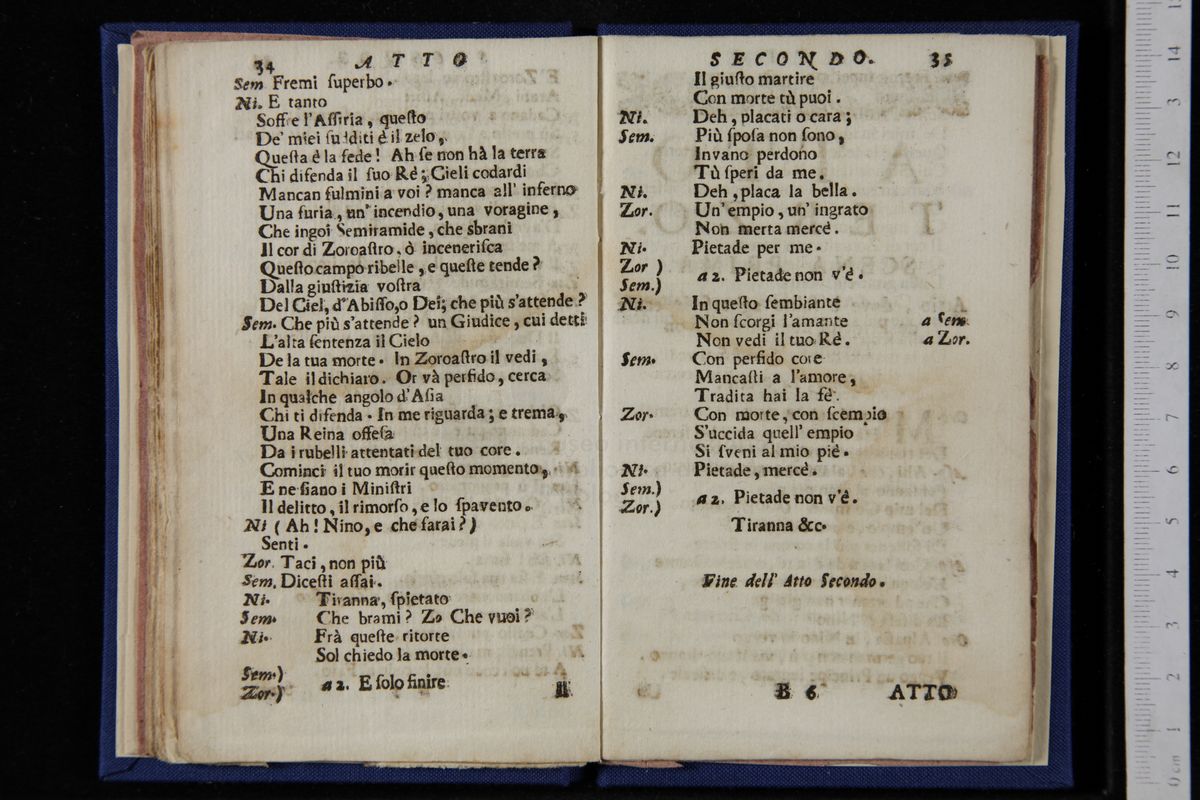 34 ATTO
Sem Fremi ſuperbo.
Ni. E tanto
Soffre l'Aſſiria, queſto
De' miei ſudditi è il zelo,
Queſta è la fede! Ah ſe non hà la terra
Chi difenda il ſuo Rè; Cieli codardi
Mancan fulmini a voi? manca all' inferno
Una furia, un' incendio, una voragine,
Che ingoi Semiramide, che sbrani
Il cor di Zoroaſtro, ò inceneriſca
Queſto campo ribelle, e queſte tende?
Dalla giuſtizia voſtra
Del Ciel, d'Abiſſo, o Dei; che più s'attende?
Sem. Che più s'attende? un Giudice, cui detti
L'alta ſentenza il Cielo
De la tua morte. In Zoroaſtro il vedi,
Tale il dichiaro. Or và perfido, cerca
In qualche angolo d'Aſia
Chi ti difenda. In me riguarda; e trema,
Una Reina offeſa
Da i rubelli attentati del tuo core.
Cominci il tuo morir queſto momento,
E ne ſiano i Miniſtri
Il delitto, il rimorſo, e lo ſpavento.
Ni (Ah! Nino, e che farai?)
Senti.
Zor. Taci, non più
Sem. Diceſti aſſai.
Ni. Tiranna, ſpietato
Sem. Che brami? Zo Che vuoi?
Ni. Frà queſte ritorte
Sol chiedo la morte.
Sem.)
Zor.) a 2. E ſolo finire
Il
SECONDO. 35
Il giuſto martire
Con morte tù puoi.
Ni. Deh, placati o cara;
Sem. Più ſpoſa non ſono,
Invano perdono
Tù ſperi da me.
Ni. Deh, placa la bella.
Zor. Un' empio, un' ingrato
Non merta mercè.
Ni. Pietade per me.
Zor )
Sem.) a 2. Pietade non v'è.
Ni. In queſto ſembiante
Non ſcorgi l'amante a Sem.
Non vedi il tuo Rè. a Zor.
Sem. Con perfido core
Mancaſti a l'amore,
Tradita hai la fè.
Zor. Con morte, con ſcempio
S'uccida quell' empio
Si ſveni al mio piè.
Ni. Pietade, mercè.
Sem.)
Zor.) a 2. Pietade non v'è.
Tiranna &c.
Fine dell' Atto Secondo.
B 6 ATTO
14
13
12
11
10
9
8
7
6
5
4
3
2
1
0 cm